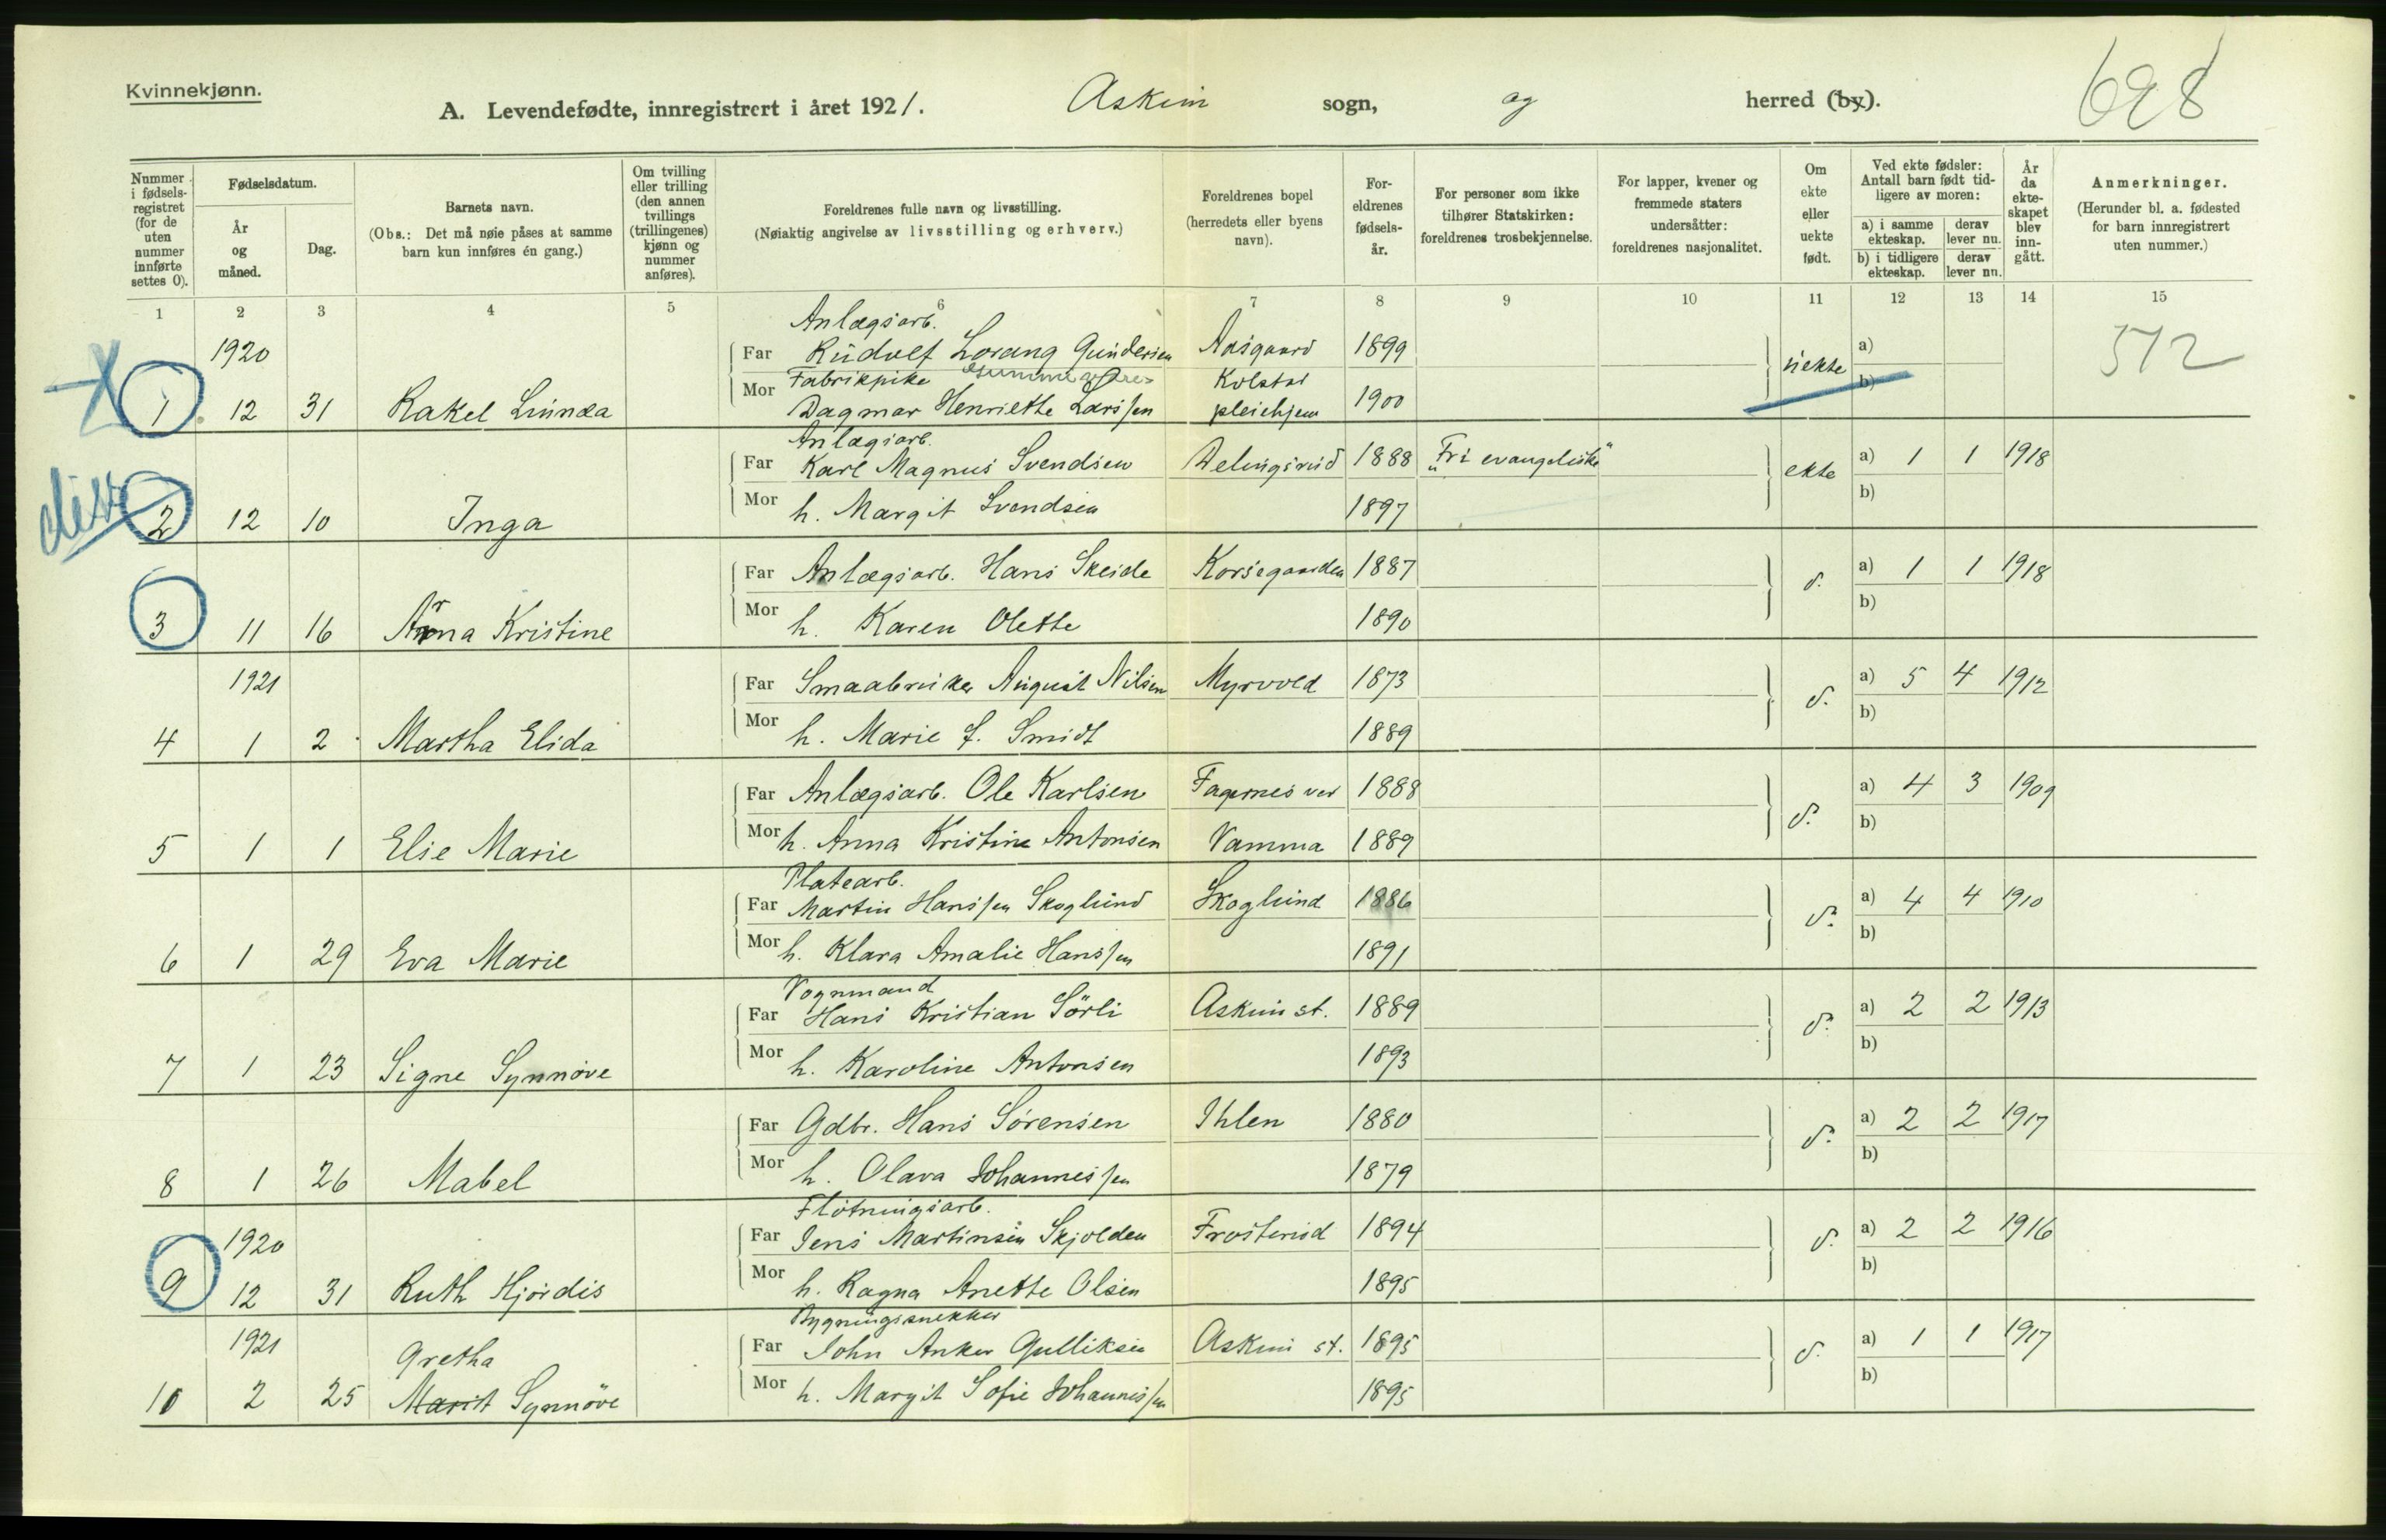 Kvinnekjønn.
A. Levendefødte, innregistrert i året 1921.
Askim sogn, og herred (by).
698
Nummer i fødselsregistret (for de uten nummer innførte settes 0).
Fødselsdatum.
År og måned.
Dag.
Barnets navn.
(Obs.: Det må nøie påses at samme barn kun innføres én gang.)
Om tvilling eller trilling (den annen tvillings (trillingenes) kjønn og nummer anføres).
Foreldrenes fulle navn og livsstilling.
(Nøiaktig angivelse av livsstilling og erhverv.)
Foreldrenes bopel (herredets eller byens navn).
Foreldrenes fødselsår.
For personer som ikke tilhører Statskirken: foreldrenes trosbekjennelse.
For lapper, kvener og fremmede staters undersåtter: foreldrenes nasjonalitet.
Om ekte eller uekte født.
Ved ekte fødsler: Antall barn født tidligere av moren:
a) i samme ekteskap. derav lever nu.
b) i tidligere ekteskap. derav lever nu.
År da ekteskapet blev inngått.
Anmerkninger.
(Herunder bl. a. fødested for barn innregistrert uten nummer.)
1 2 3 4 5 6 7 8 9 10 11 12 13 14 15
Anlægsarb.
1920 Far Rudolf Lorang Gundersen Aasgaard 1899 uekte a) 572
Fabrikpike Kolstad b)
1 12 31 Rakel Lunda Mor Dagmar Henriette Larssen pleiehjem 1900
Anlægsarb.
Far Karl Magnus Svendsen 1888 "Fri evangeliske" ekte a) 1 1 1918
2 12 10 Inga Mor h. Margit Svendsen 1897 b)
Far Anlægsarb. Hans Skeide Korsegaarden 1887 d. a) 1 1 1918
3 11 16 Arna Kristine Mor h. Karen Olette 1890 b)
1921 Far Smaabruker August Nilsen Myrvold 1873 d. a) 5 4 1912
4 1 2 Martha Elida Mor h. Marie f. Smidt 1889 b)
Far Anlægsarb. Ole Karlsen Fagernes ved 1888 d. a) 4 3 1909
5 1 1 Elie Marie Mor h. Anna Kristine Antonsen Vamma 1889 b)
Platearb.
Far Martin Hanssen Skoglund Skoglund 1886 d. a) 4 4 1910
6 1 29 Eva Marie Mor h. Klara Amalie Hanssen 1891 b)
Vognmand
Far Hans Kristian Sörli Askim st. 1889 d. a) 2 2 1913
7 1 23 Signe Synnöve Mor h. Karoline Antonsen 1893 b)
Far Gdbr. Hans Sörensen Ihlen 1880 d. a) 2 2 1917
8 1 26 Mabel Mor h. Olava Johannessen 1879 b)
Flötningsarb.
1920 Far Jens Martinsen Skjolden Frosterud 1894 d. a) 2 2 1916
9 12 31 Ruth Hjördis Mor h. Ragna Anette Olsen 1895 b)
Bygningssnekker
1921 Gretha Far John Anker Gulliksen Askim st. 1895 d. a) 1 1 1917
10 2 25 Marit Synnöve Mor h. Margit Sofie Johannessen 1895 b)